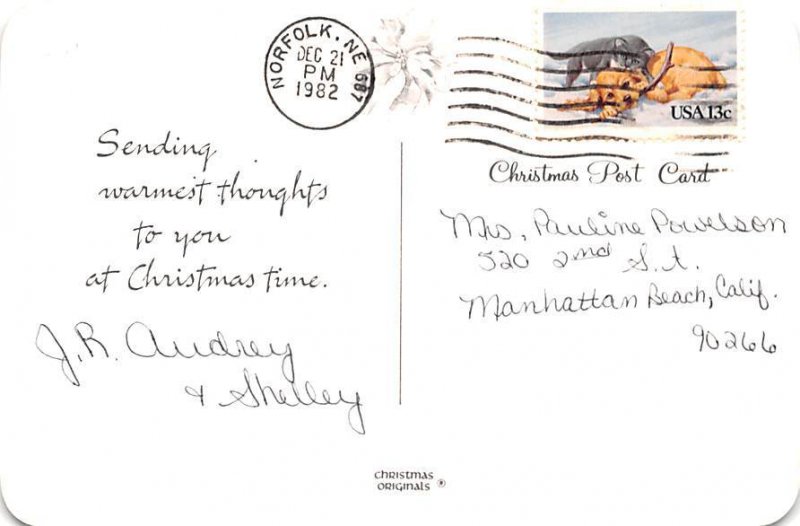 NORFOLK, NE 687
DEC 21
PM
1982
USA 13c
Christmas Post Card
Sending
warmest thoughts
to you
at Christmas time.
J.R. Audrey
& Shelley
Mrs. Pauline Powelson
520 2nd S.t.
Manhattan Beach, Calif.
90266
CHRISTMAS
ORIGINALS ®